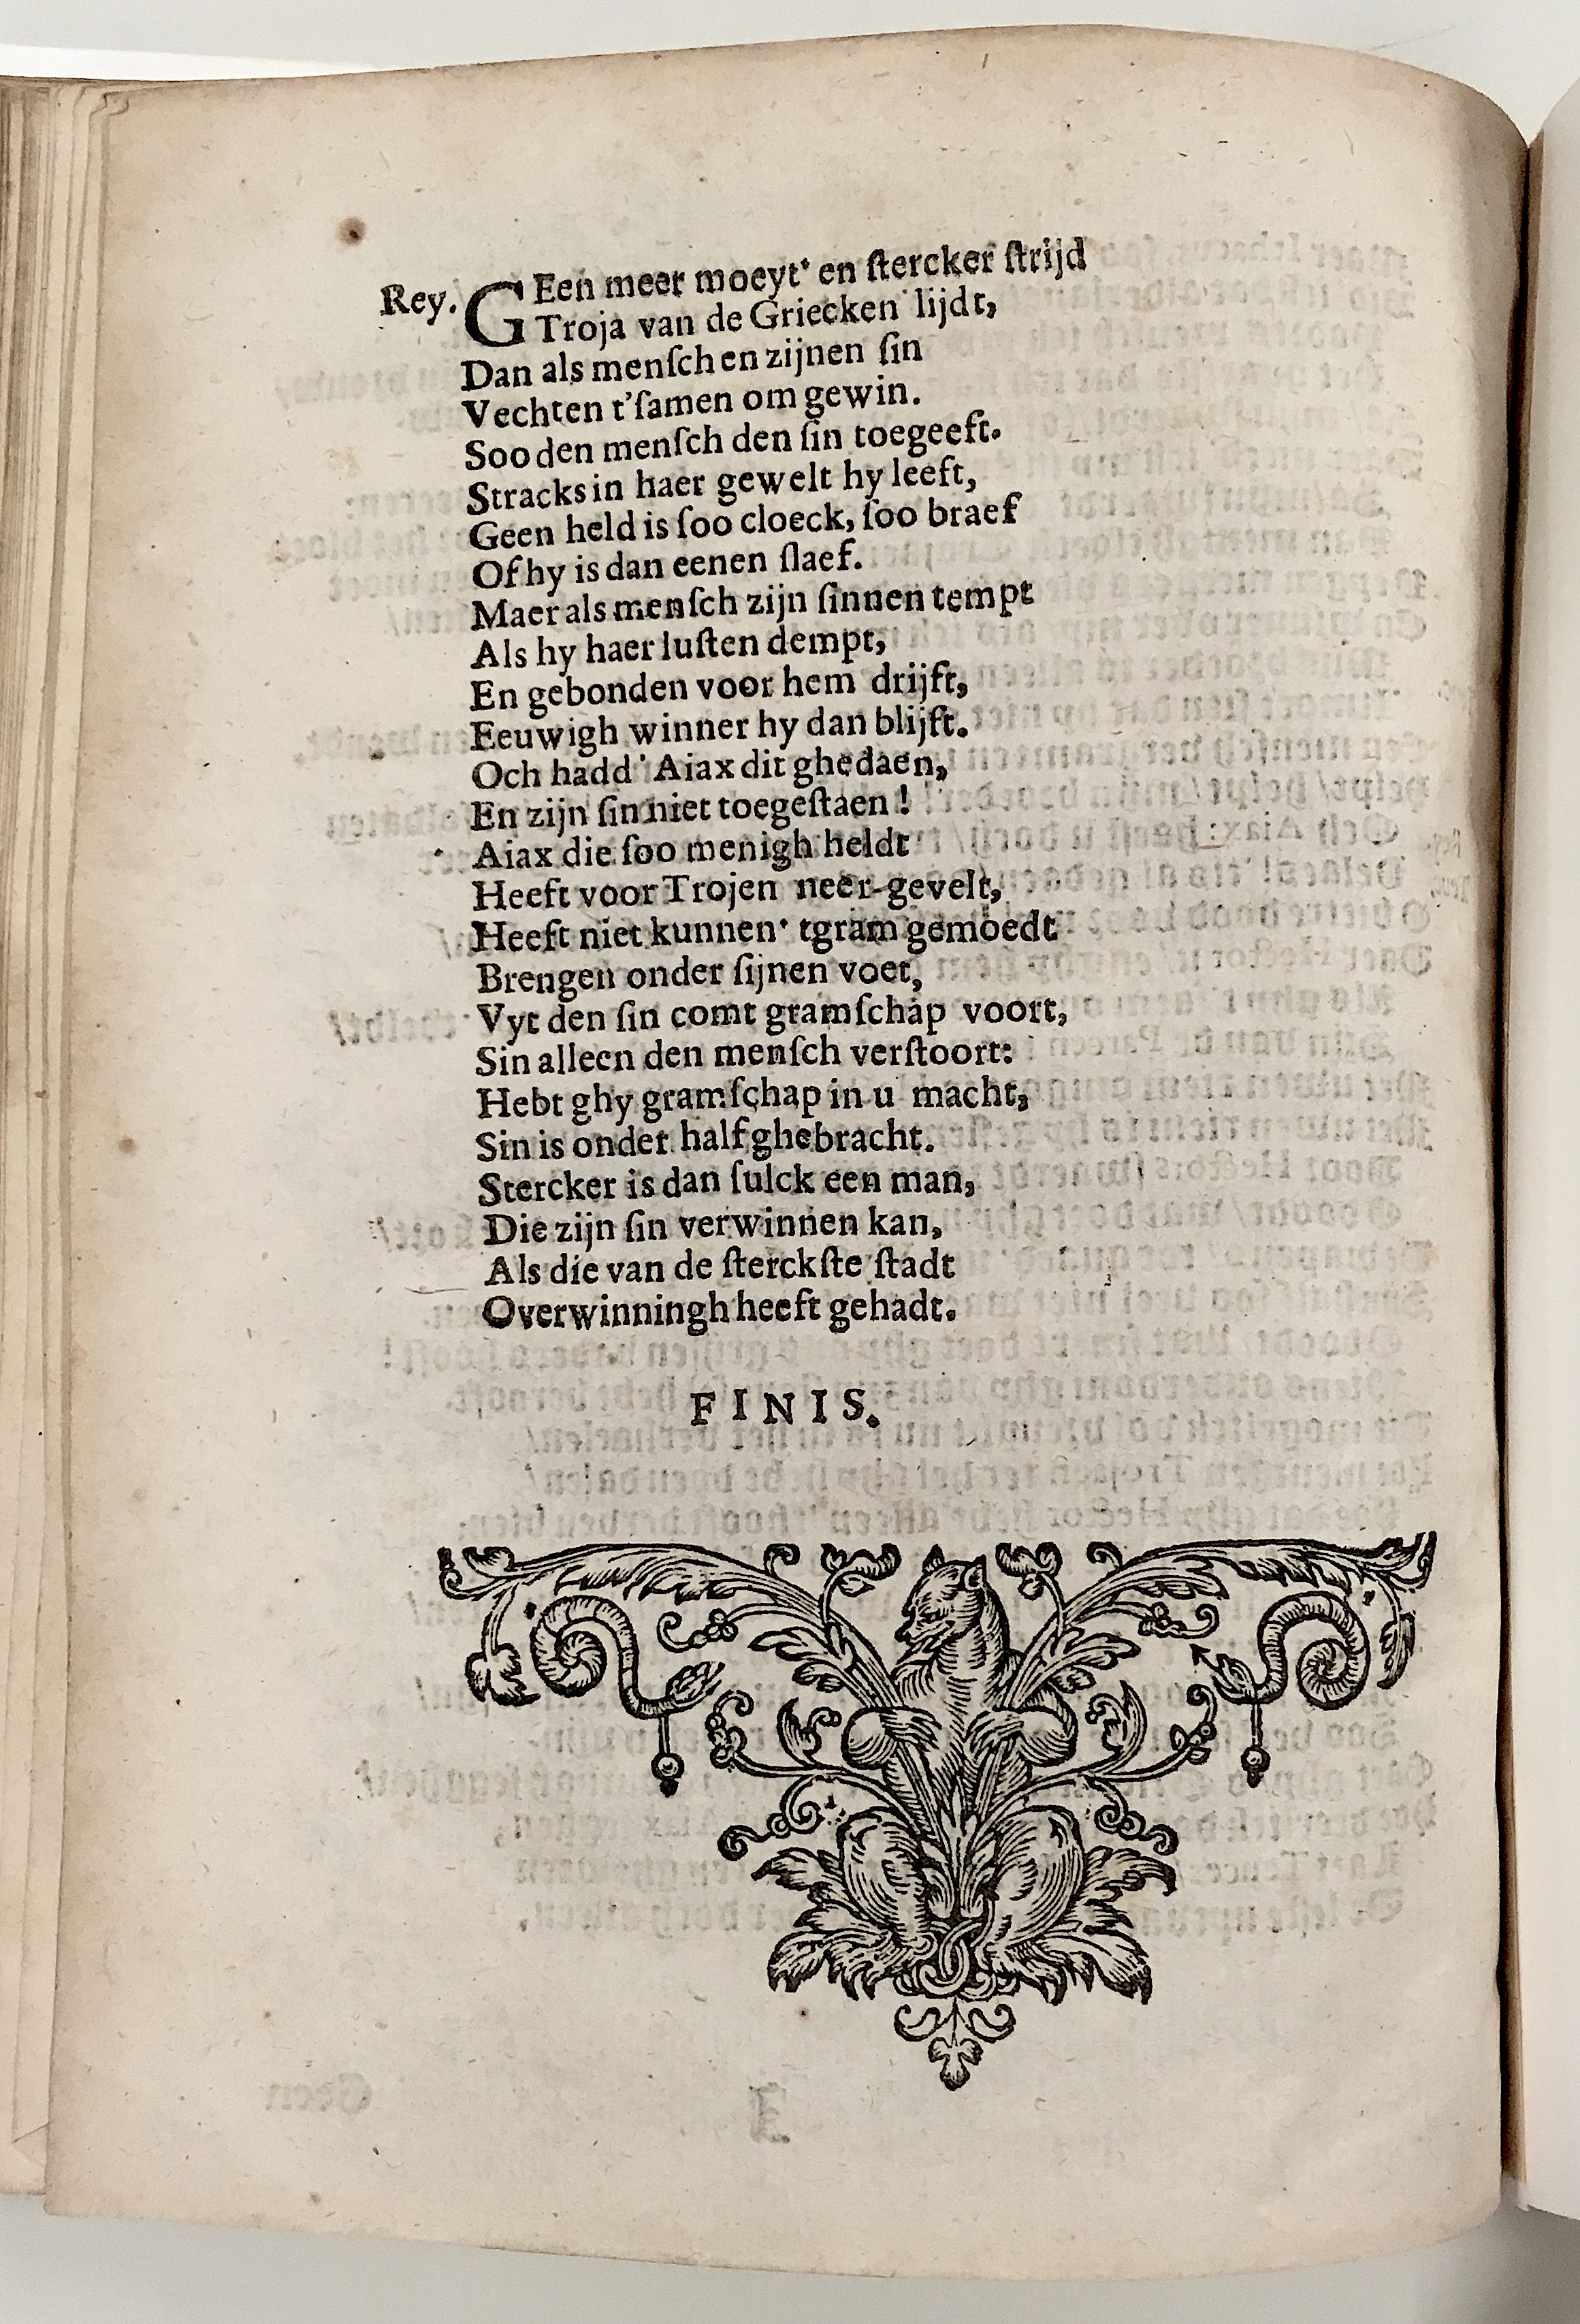 Rey. GEen meer moeyt' en ſtercker ſtrijd
Troja van de Griecken lijdt,
Dan als menſch en zijnen ſin
Vechten t'ſamen om gewin.
Soo den menſch den ſin toegeeft.
Stracks in haer gewelt hy leeft,
Geen held is ſoo cloeck, ſoo braef
Of hy is dan eenen ſlaef.
Maer als menſch zijn ſinnen tempt
Als hy haer luſten dempt,
En gebonden voor hem drijft,
Eeuwigh winner hy dan blijft.
Och hadd' Aiax dit ghedaen,
En zijn ſin niet toegeſtaen!
Aiax die ſoo menigh heldt
Heeft voor Trojen neer-gevelt,
Heeft niet kunnen' tgram gemoedt
Brengen onder ſijnen voet,
Vyt den ſin comt gramſchap voort,
Sin alleen den menſch verſtoort:
Hebt ghy gramſchap in u macht,
Sin is onder half ghebracht.
Stercker is dan ſulck een man,
Die zijn ſin verwinnen kan,
Als die van de ſterckſte ſtadt
Overwinningh heeft gehadt.
FINIS.